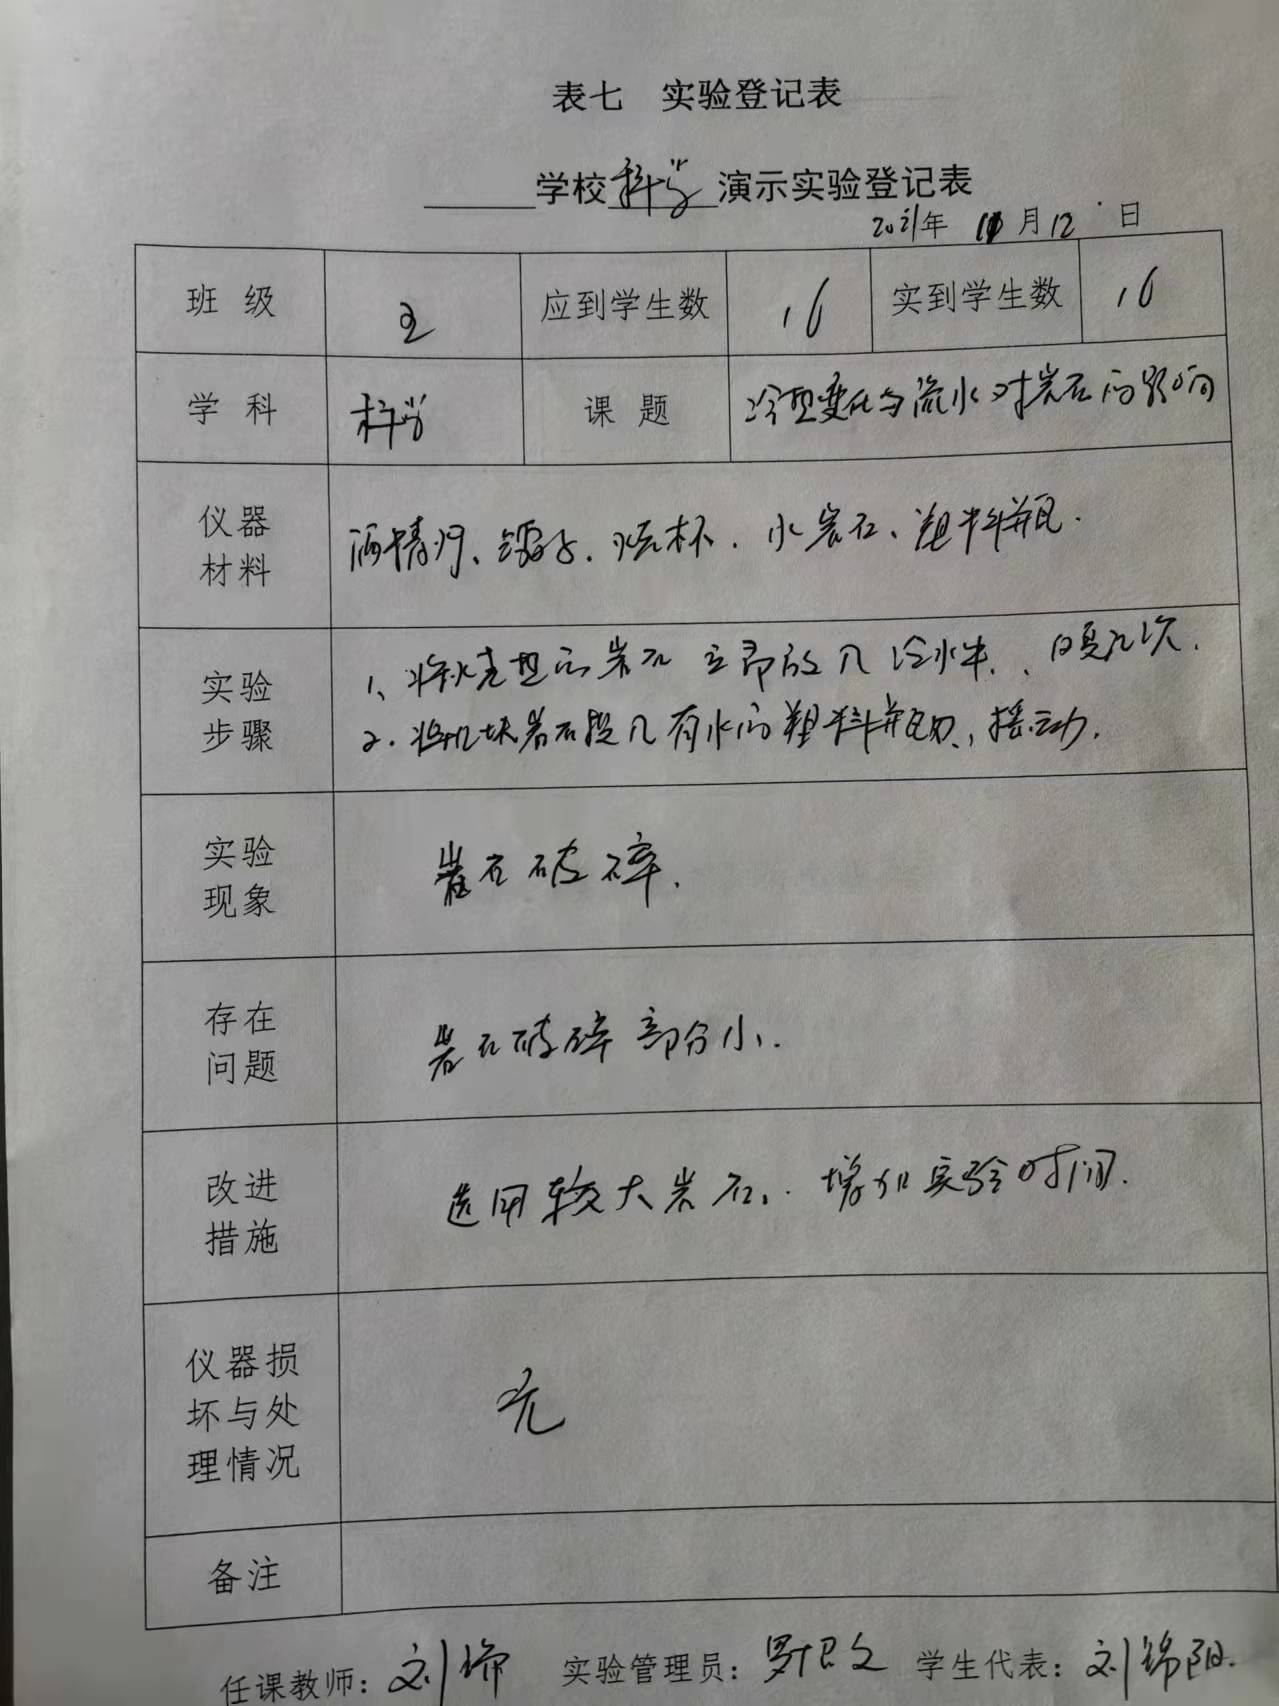 表七 实验登记表
______学校 科学 演示实验登记表
2021年 11月12日
班级 五 应到学生数 16 实到学生数 16
学科 科学 课题 冷热变化与流水对岩石的影响
仪器
材料
酒精灯、镊子、烧杯、水岩石、塑料瓶.
实验
步骤
1、将烧热的岩石立即放入冷水中、反复几次.
2. 将几块岩石投入有水的塑料瓶内、摇动.
实验
现象
岩石破碎.
存在
问题
岩石破碎部分小.
改进
措施
选用较大岩石、增加实验时间.
仪器损
坏与处
理情况
无
备注
任课教师：刘 实验管理员：罗 文 学生代表：刘锦阳